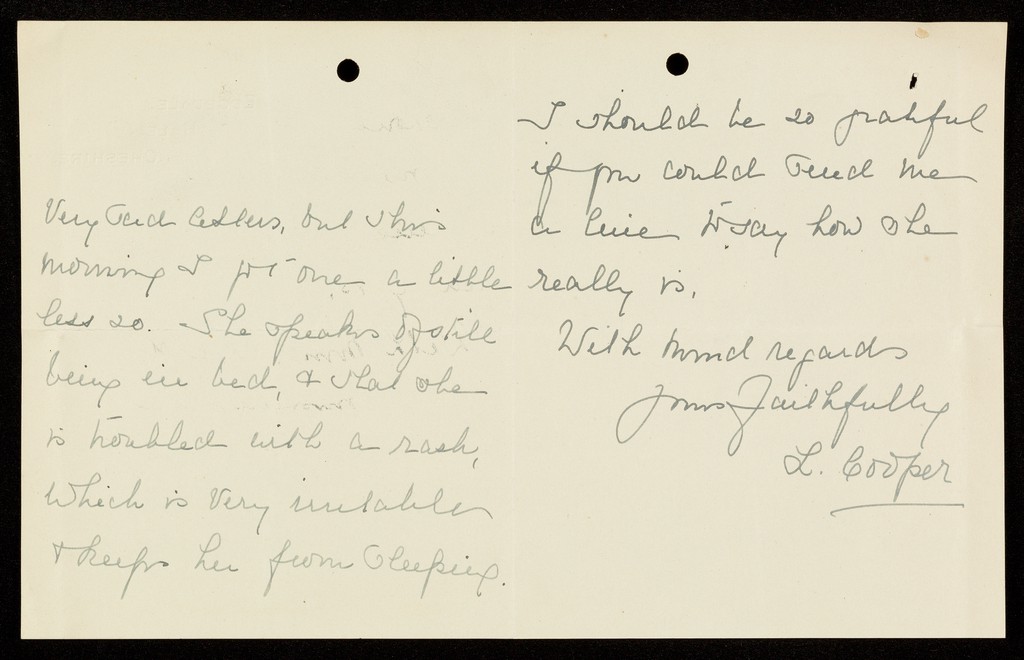 Very sad letters, but this
morning I got one a little
less so. She speaks of still
being in bed, & that she
is troubled with a rash,
which is very irritable
& keeps her from sleeping.
I should be so grateful
if you could send me
a line to say how she
really is.
With kind regards
Yours faithfully
L. Cooper